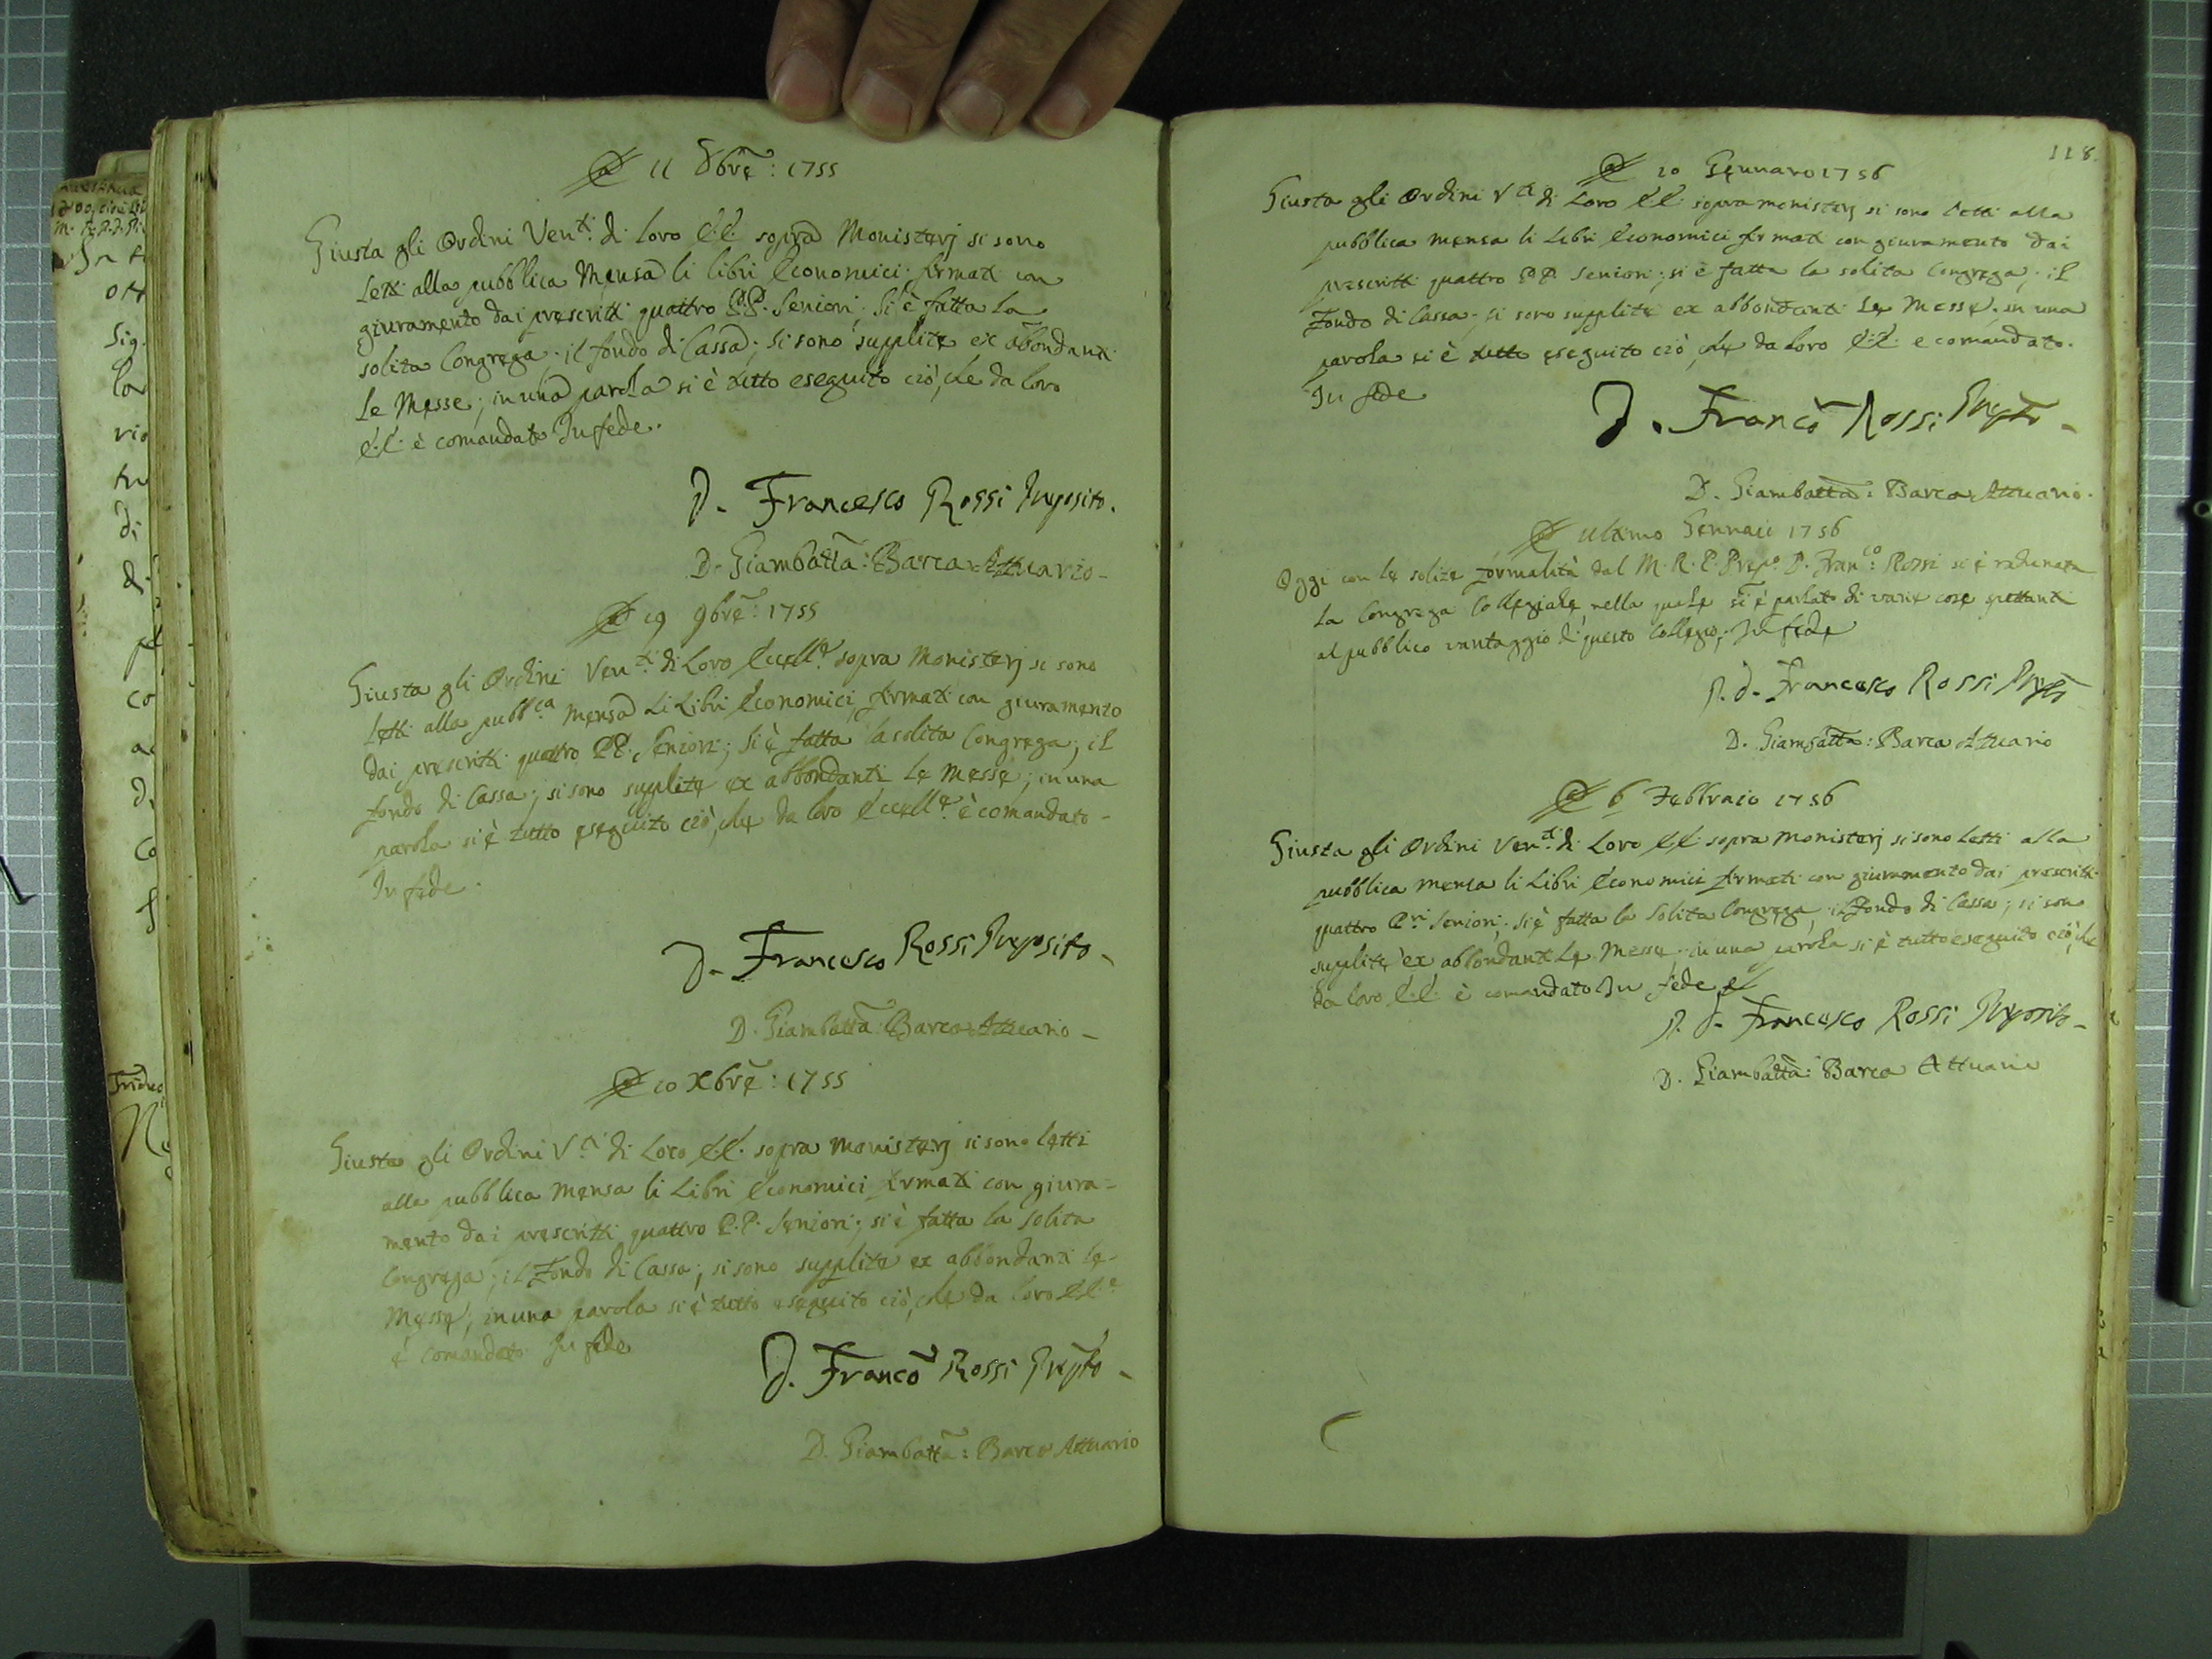 11 8bre: 1755
Giusta gli Ordini Ven.ti di loro E.E. sopra Monisterj si sono
Letti alla pubblica Mensa li libri Economici firmati con
giuramento dai prescritti quattro P.P. Seniori; si è fatta la
solita Congrega; il fondo di Cassa; si sono supplite ex abondanti
le Messe; in una parola si è tutto eseguito ciò, che da loro
E.E. è comandato In fede.
D. Francesco Rossi Preposito.
D. Giambatta: Barca Attuario
19 9bre: 1755
Giusta gli Ordini Ven.ti di Loro Eccell.e sopra Monisterj si sono
Letti alla pubb.ca Mensa Li Libri Economici, firmati con giuramento
dai prescritti quattro PP. Seniori; si è fatta la solita Congrega; il
fondo di Cassa; si sono supplite ex abbondanti Le Messe; in una
parola si è tutto eseguito ciò, che da loro Eccell.e è comandato
In fede.
D. Francesco Rossi Preposito
D. Giambatta: Barca Attuario
10 Xbre: 1755
Giusta gli Ordini V.ti di Loro E.E. sopra Monisterj si sono letti
alla pubblica Mensa li Libri Economici firmati con giura=
mento dai prescritti quattro P.P. Seniori; si è fatta la solita
Congrega; il Fondo di Cassa; si sono supplite ex abbondanti le
Messe; in una parola si è tutto eseguito ciò, che da loro EE.e
è comandato In fede
D. Franco Rossi Prepto
D. Giambatta: Barca Attuario
118.
10 Gennaro 1756
Giusta gli Ordini V.ti di Loro EE. sopra monisterj si sono letti alla
pubblica mensa li Libri Economici firmati con giuramento dai
prescritti quattro P.P. Seniori; si è fatta la solita Congrega; il
Fondo di Cassa; si sono supplite ex abbondanti Le Messe; in una
parola si è tutto eseguito ciò, che da loro E.E. e comandato.
In fede
D. Franco Rossi Prepto
D. Giambatta: Barca Attuario.
ultimo Gennaio 1756
Oggi con le solite formalità dal M.R.P. Prep.o D. Fran.co: Rossi si è radunata
La Congrega Collegiale nella quale si è parlato di varie cose spettanti
al pubblico vantaggio di questo Collegio; In fede
D. Francesco Rossi Prepto
D. Giambatta: Barca Attuario
6 Febbraio 1756
Giusta gli Ordini Ven.ti di Loro EE sopra monisterj si sono Letti alla
pubblica mensa li Libri Economici firmati con giuramento dai prescritti
quattro P.ri Seniori; si è fatta la Solita Congrega; il Fondo di Cassa; si son
supplite ex abbondanti Le Messe; in una parola si è tutto eseguito ciò, che
da loro E.E. è comandato In fede
D. Francesco Rossi Preposito
D. Giambatta: Barca Attuario